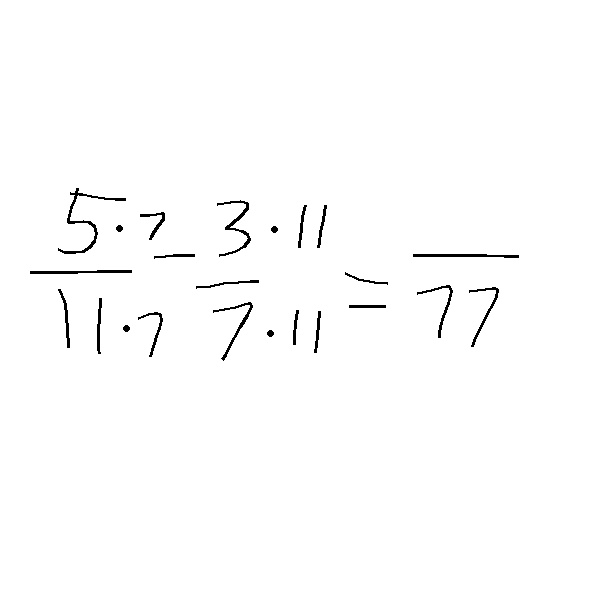 5·7/11·7 − 3·11/7·11 = /77